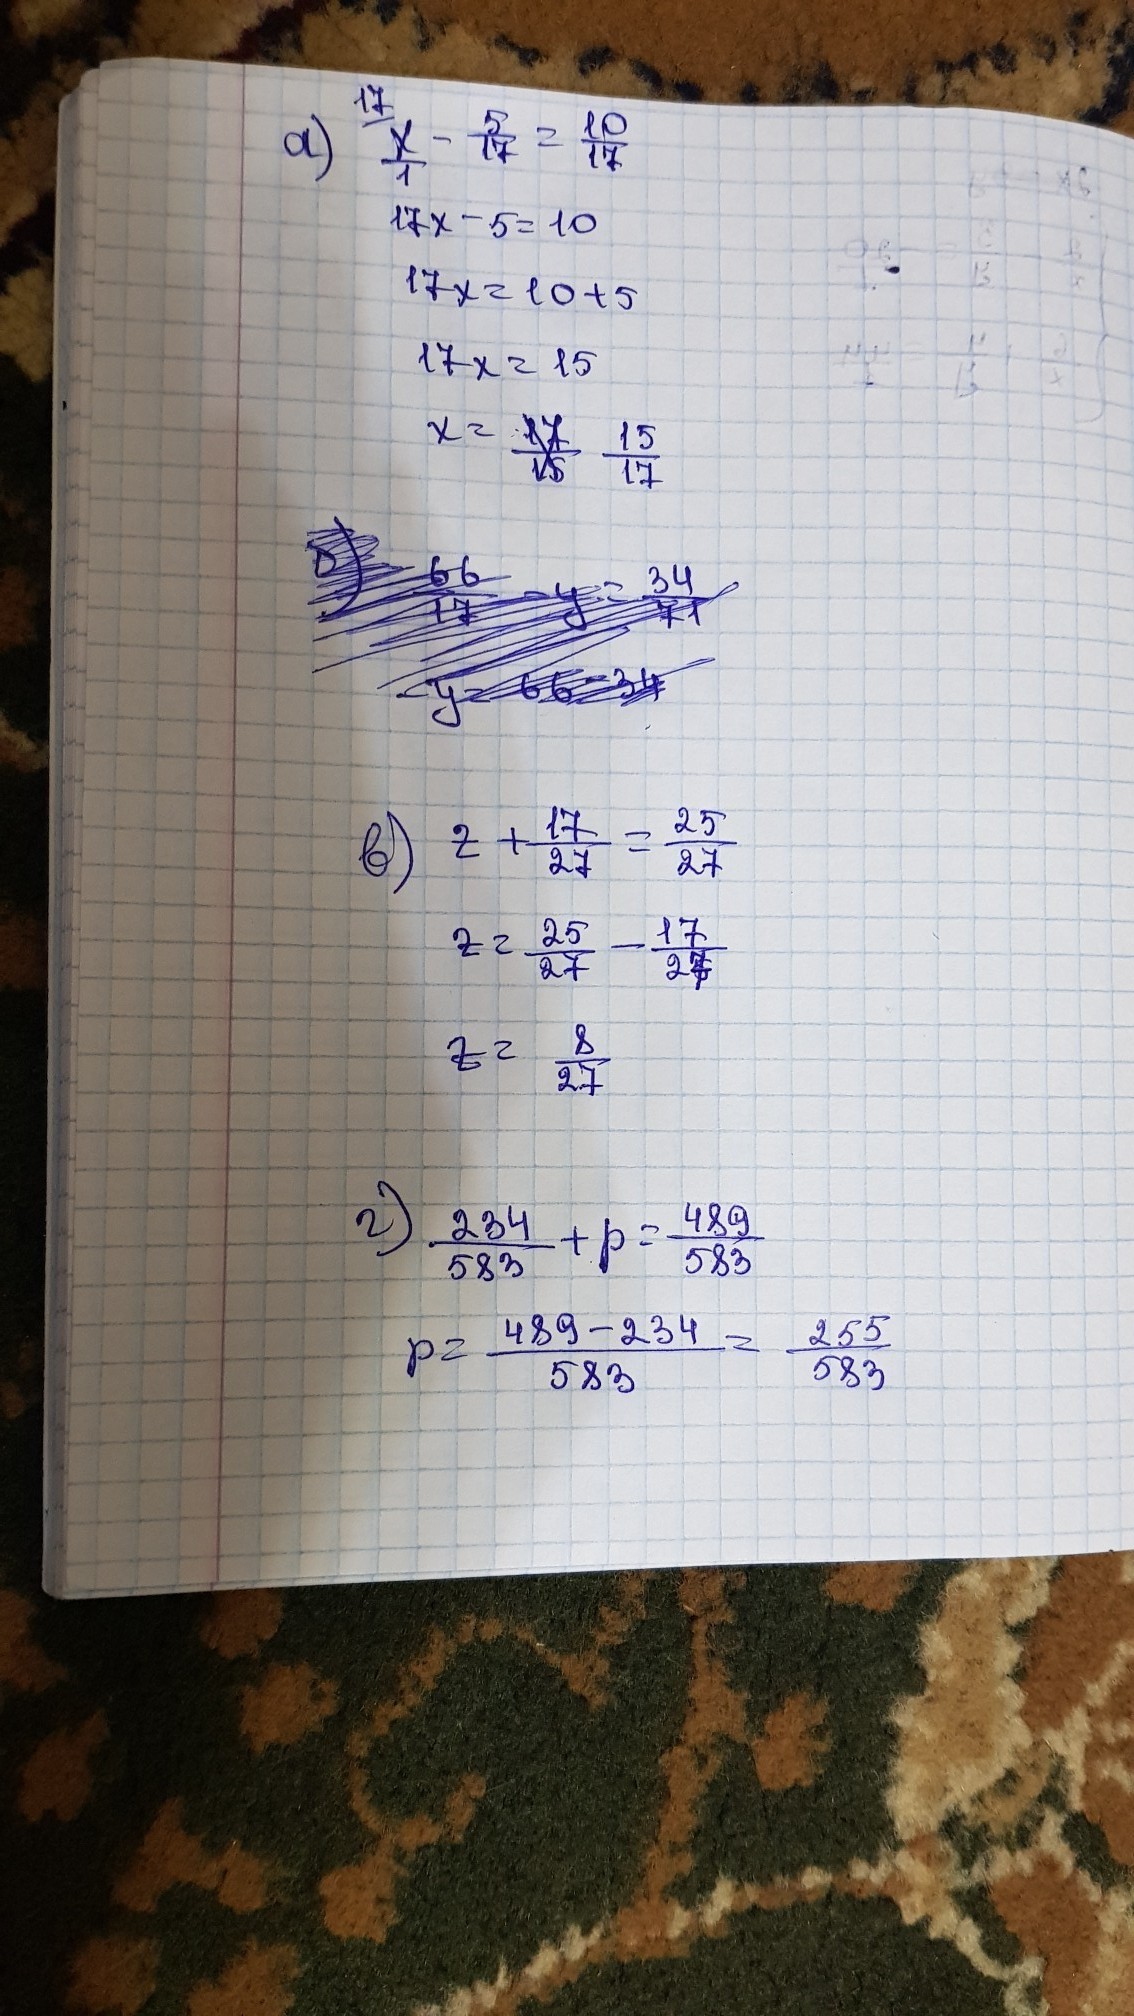 а) 17 x/1 - 5/17 = 10/17
17x - 5 = 10
17x = 10 + 5
17x = 15
x = 17/15 15/17
б) 66/17 - y = 34/71
-y = 66 - 34
в) z + 17/27 = 25/27
z = 25/27 - 17/27
z = 8/27
г) 234/583 + p = 489/583
p = 489 - 234/583 = 255/583